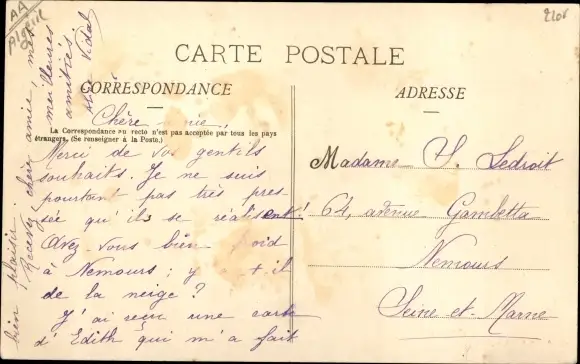 AA
Algérie
CARTE POSTALE
CORRESPONDANCE
ADRESSE
Chère
La Correspondance au recto n'est pas acceptée par tous les pays
étrangers. (Se renseigner à la Poste.)
Merci de vos gentils
souhaits. Je ne suis
pourtant pas très pres
sée qu'ils se réalisent!
Avez-vous bien
à Nemours; y
de la neige?
J'ai reçu une carte
d'Edith qui m'a fait
bien plaisir.
Recevez, chère amie, mes
meilleures
amitiés.
Madame Y. Ledroit
64, avenue Gambetta
Nemours
Seine-et-Marne